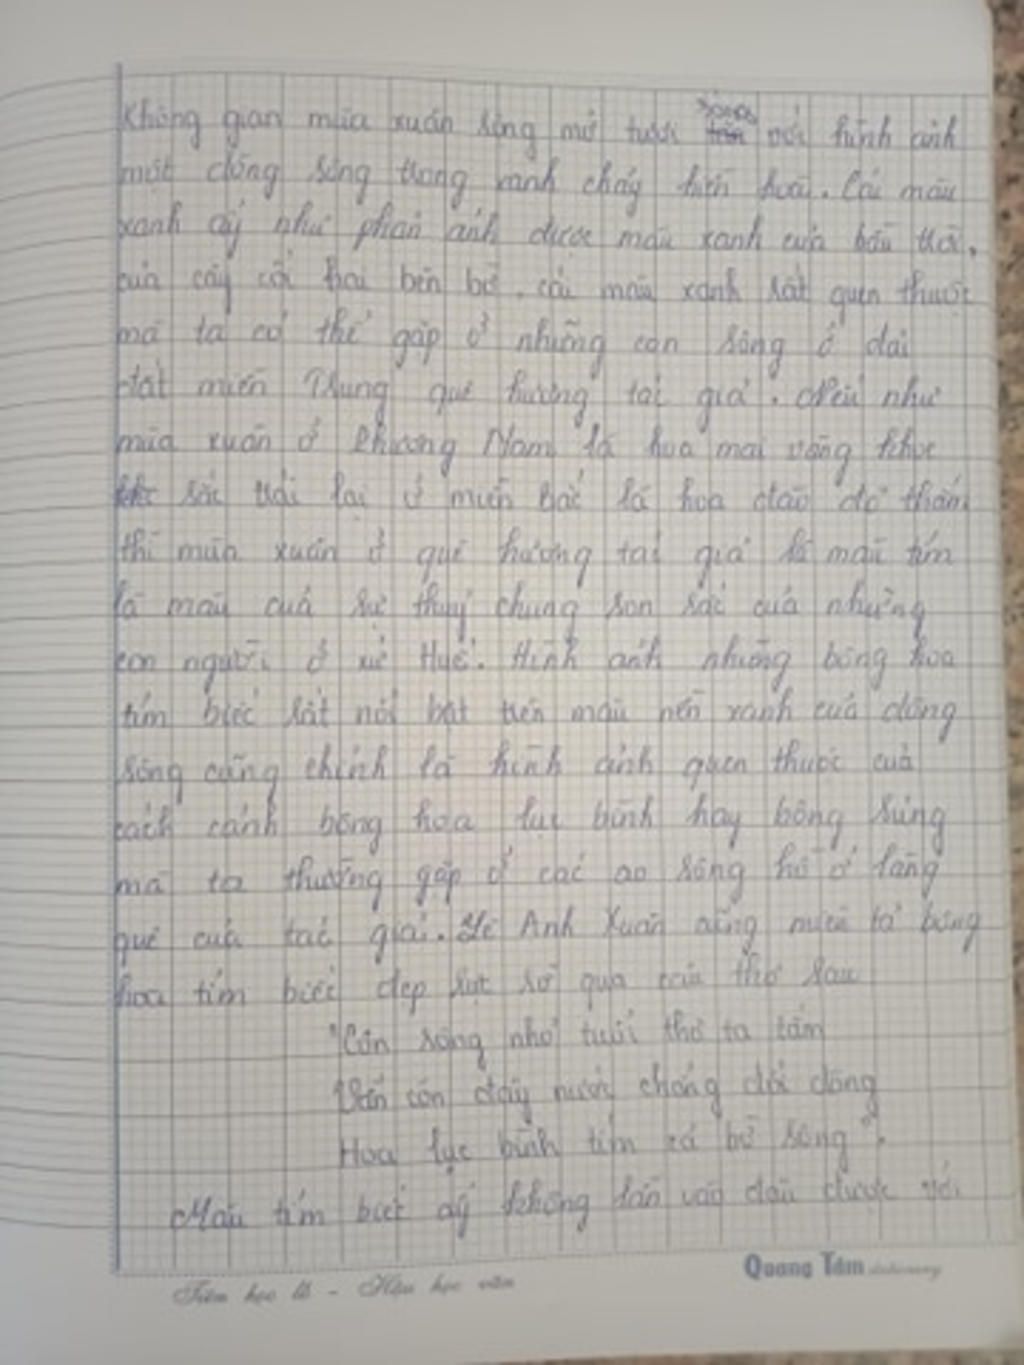 Không gian mùa xuân sông mở tươi sáng với hình ảnh
một dòng sông trong xanh chảy hiền hoà. Cái màu
xanh ấy như phản ánh được màu xanh của bầu trời,
của cây cối hai bên bờ, cái màu xanh rất quen thuộc
mà ta có thể gặp ở những con sông ở dải
đất miền Trung quê hương tác giả. Nếu như
mùa xuân ở Phương Nam là hoa mai vàng khoe
sắc trái lại ở miền Bắc là hoa đào đỏ thắm
thì mùa xuân ở quê hương tác giả là màu tím
là màu của sự thuỷ chung son sắc của những
con người ở xứ Huế. Hình ảnh những bông hoa
tím biếc rất nổi bật trên màu nền xanh của dòng
sông cũng chính là hình ảnh quen thuộc của
cách cánh bông hoa lục bình hay bông súng
mà ta thường gặp ở các ao sông hồ ở làng
quê của tác giả. Lê Anh Xuân cũng miêu tả bông
hoa tím biếc đẹp rực rỡ qua câu thơ sau
"Con sông nhỏ tuổi thơ ta tắm
Vẫn còn đây nước chẳng đổi dòng
Hoa lục bình tím cả bờ sông".
Màu tím biếc ấy không lẫn vào đâu được với
Tiên học lễ - Hậu học văn
Quang Tâm stationery